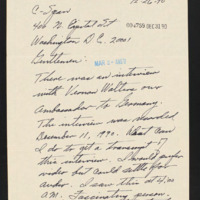 C-Span
400 N. Capitol St
Washington D.C. 20001
Gentlemen:
There was an interview
with Vernon Walters our
Ambassador to Germany.
The interview was recorded
December 11, 1990. What can
I do to get a transcript of
this interview. I would prefer
video but could settle for
audio. I saw this at 4:00
A.M. Fascinating person.